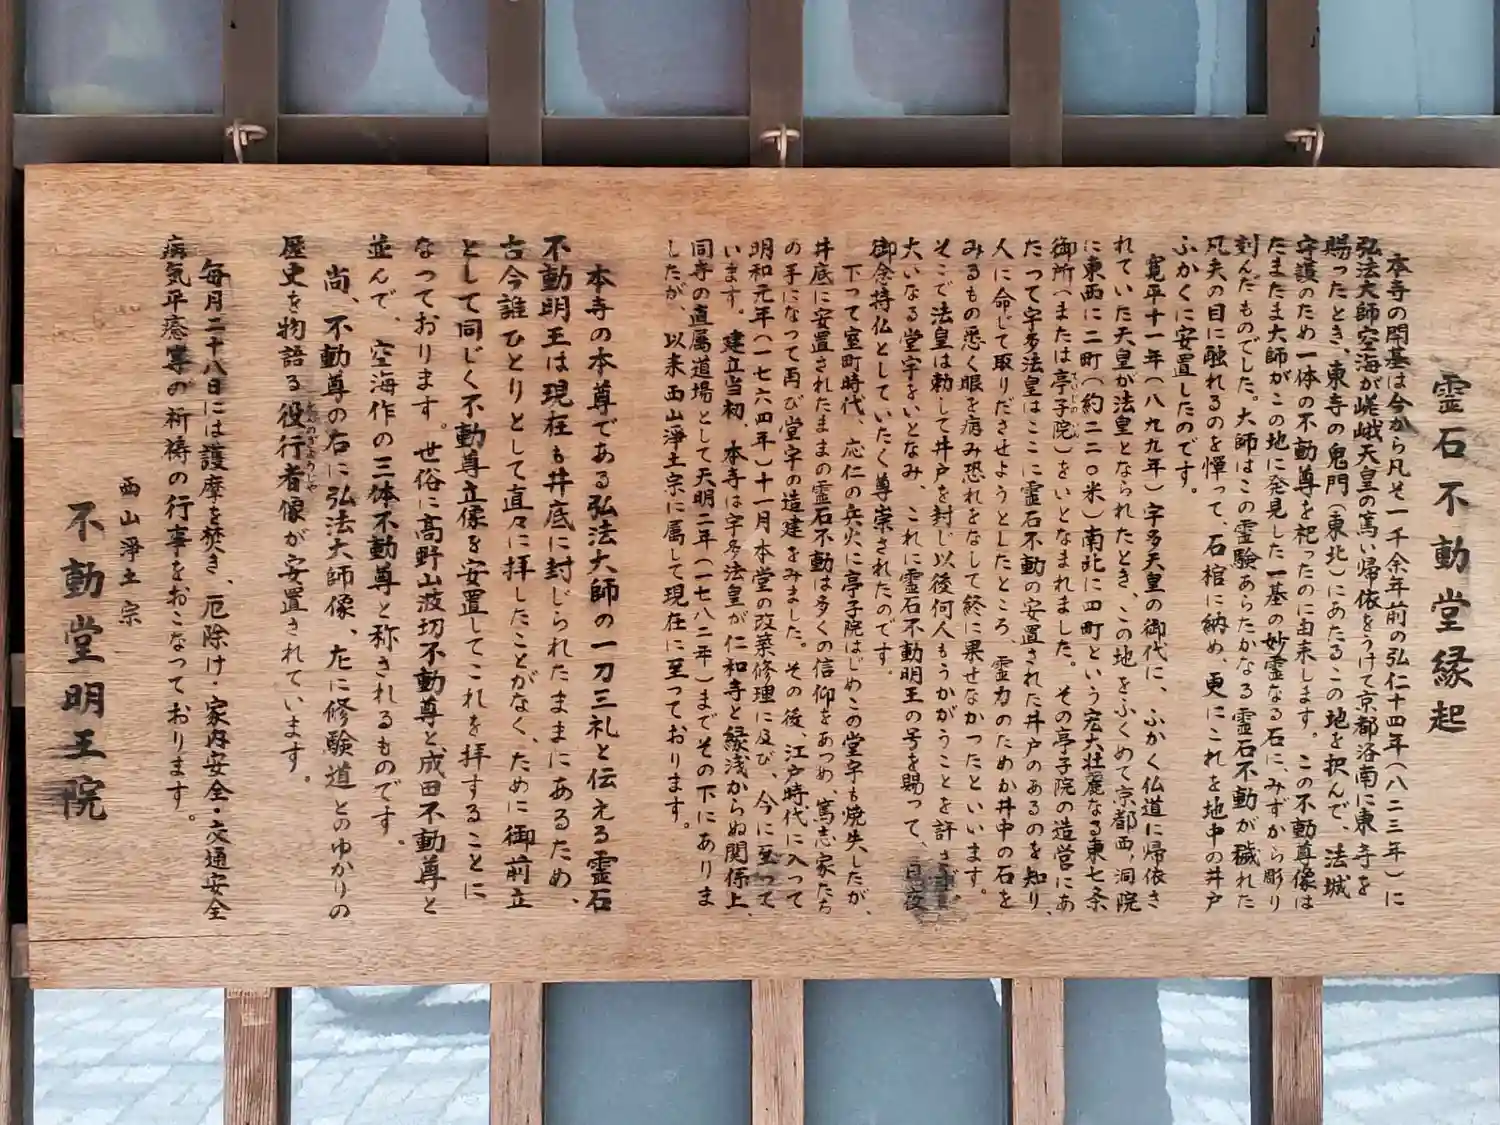 霊石不動堂縁起
本寺の開基は今から凡そ一千余年前の弘仁十四年(八二三年)に
弘法大師空海が嵯峨天皇の篤い帰依をうけて京都洛南に東寺を
賜ったとき、東寺の鬼門(東北)にあたるこの地を択んで、法城
守護のため一体の不動尊を祀ったのに由来します。この不動尊像は
たまたま大師がこの地に発見した一基の妙霊なる石に、みずから彫り
刻んだものでした。大師はこの霊験あらたかなる霊石不動が穢れた
凡夫の目に触れるのを憚って、石棺に納め、更にこれを地中の井戸
ふかくに安置したのです。
寛平十一年(八九九年)宇多天皇の御代に、ふかく仏道に帰依さ
れていた天皇が法皇となられたとき、この地をふくめて京都西,洞院
に東西に二町(約二二〇米)南北に四町という宏大壮麗なる東七条
御所(または亭子院)をいとなまれました。その亭子院の造営にあ
たって宇多法皇はここに霊石不動の安置された井戸のあるのを知り、
人に命じて取りださせようとしたところ、霊力のためか井中の石を
みるもの悉く眼を病み恐れをなして終に果せなかったといいます。
そこで法皇は勅して井戸を封じ以後何人もうかがうことを許さず、
大いなる堂宇をいとなみ、これに霊石不動明王の号を賜って、日夜
御念持仏としていたく尊崇されたのです。
下って室町時代、応仁の兵火に亭子院はじめこの堂宇も焼失したが、
井底に安置されたままの霊石不動は多くの信仰をあつめ、篤志家たち
の手になって再び堂宇の造建をみました。その後、江戸時代に入って
明和元年(一七六四年)十一月本堂の改築修理に及び、今に至って
います。建立当初、本寺は宇多法皇が仁和寺と縁浅からぬ関係上、
同寺の直属道場として天明二年(一七八二年)までその下にありま
したが、以来西山浄土宗に属して現在に至っております。
本寺の本尊である弘法大師の一刀三礼と伝える霊石
不動明王は現在も井底に封じられたままにあるため、
古今誰ひとりとして直々に拝したことがなく、ために御前立
として同じく不動尊立像を安置してこれを拝することに
なっております。世俗に高野山波切不動尊と成田不動尊と
並んで、空海作の三体不動尊と称されるものです。
尚、不動尊の右に弘法大師像、左に修験道とのゆかりの
歴史を物語る役行者像が安置されています。
毎月二十八日には護摩を焚き、厄除け・家内安全・交通安全
病気平癒等の祈祷の行事をおこなっております。
西山浄土宗
不動堂明王院